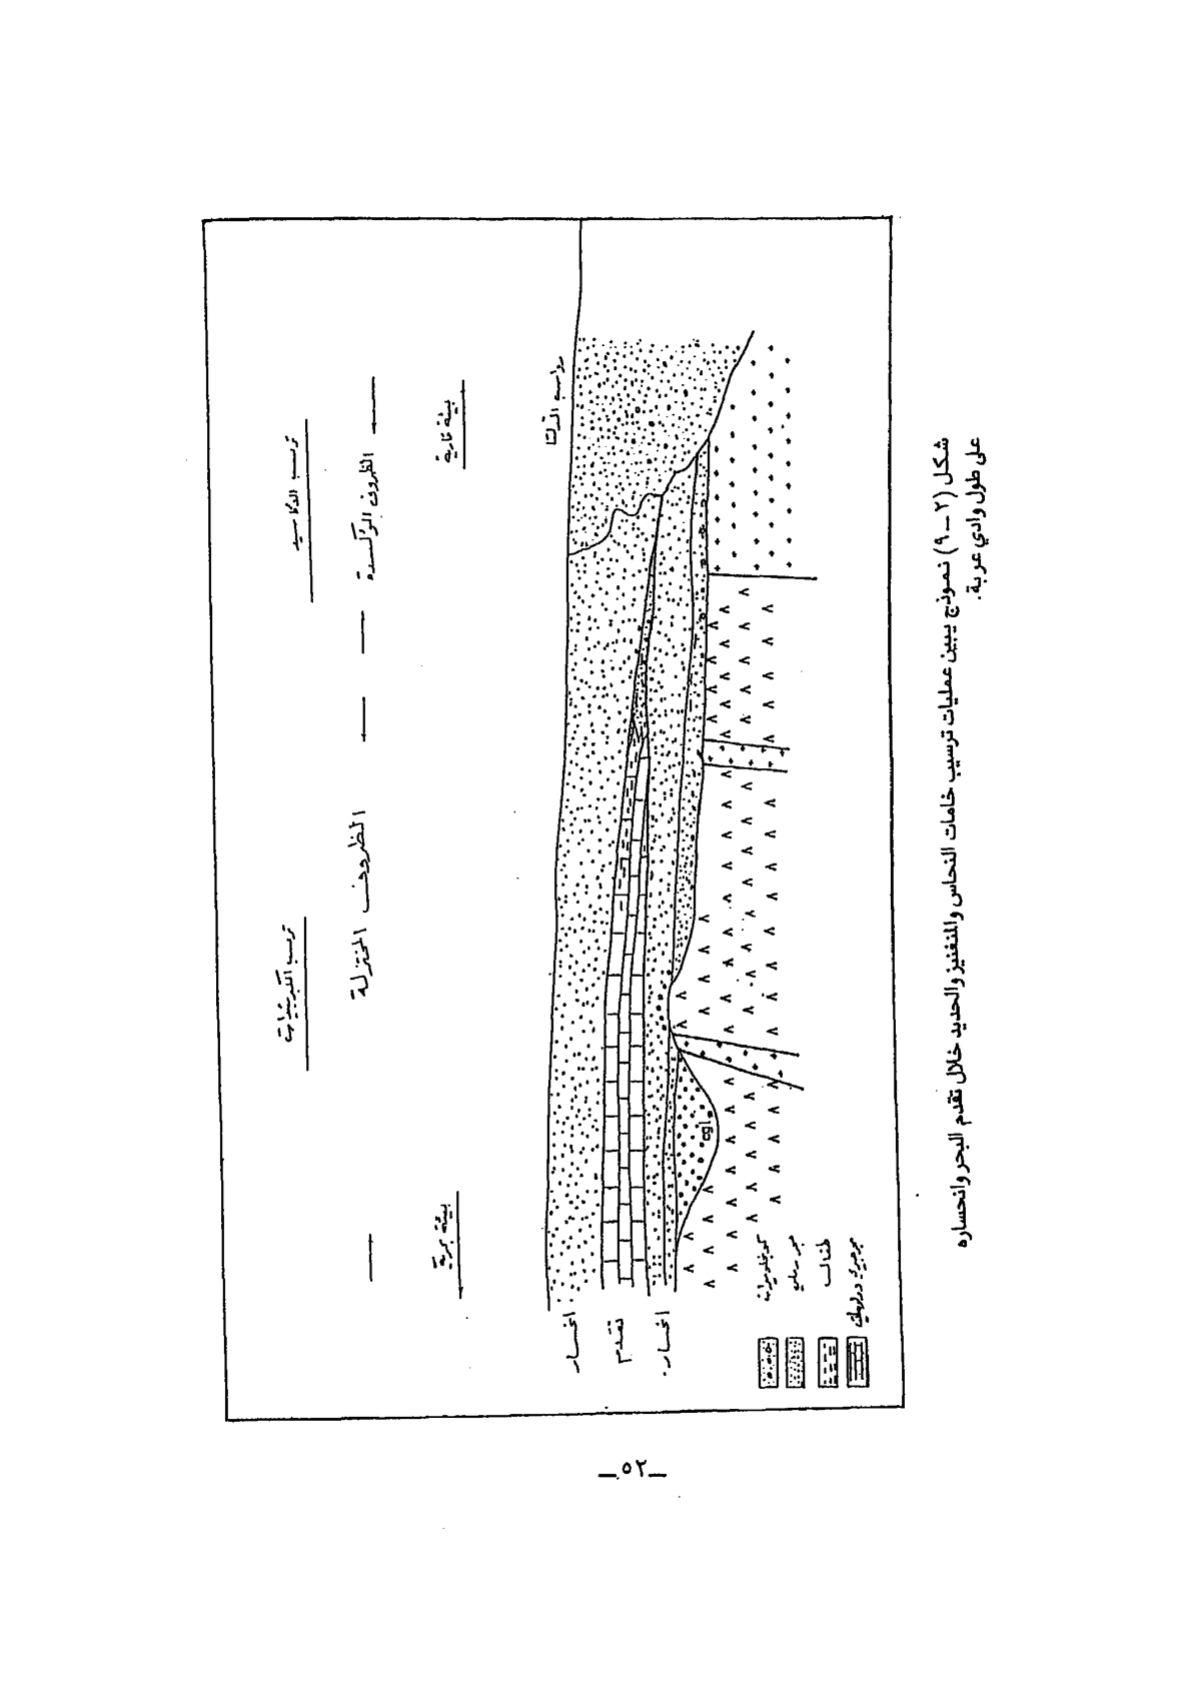 ترسب الاكاسيد
ترسب الكبريتيدات
الظروف المؤكسدة
الظروف المختزلة
بيئة قارية
بيئة بحرية
رواسب الدلتا
انحسار
تقدم
انحسار
كونجلوميرات
حجر رملي
طفال
حجر جيري دولوميتي
شكل (٢ – ٩) نموذج يبين عمليات ترسيب خامات النحاس والمنغنيز والحديد خلال تقدم البحر وانحساره
على طول وادي عربة.
–٥٢–